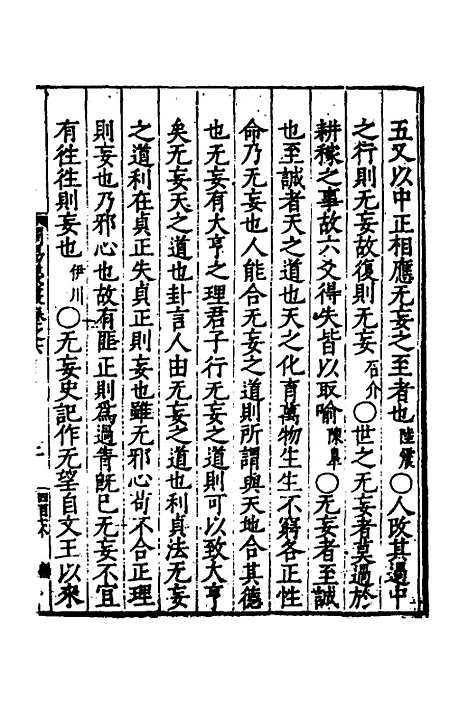 五又以中正相應无妄之至者也陸震〇人改其過中
之行則无妄故復則无妄石介〇世之无妄者莫過於
耕稼之事故六爻得失皆以取喻陳臯〇无妄者至誠
也至誠者天之道也天之化育萬物生生不窮各正性
命乃无妄也人能合无妄之道則所謂與天地合其德
也无妄有大亨之理君子行无妄之道則可以致大亨
矣无妄天之道也卦言人由无妄之道也利貞法无妄
之道利在貞正失貞正則妄也雖无邪心茍不合正理
則妄也乃邪心也故有匪正則爲過眚旣已无妄不宜
有往往則妄也伊川〇无妄史記作无望自文王以來